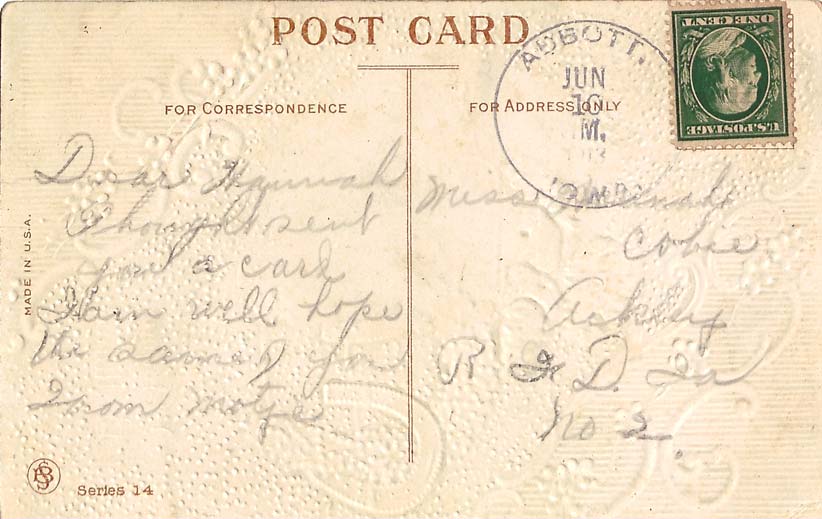 POST CARD
FOR CORRESPONDENCE
FOR ADDRESS ONLY
ABBOTT,
JUN
16
M.
IOWA
ONE CENT
U.S. POSTAGE
MADE IN U.S.A.
Dear Hannah
I thought sent
you a card
I am well hope
the same of you
From
Miss Hannah
Cobie
R F D. Ia
No 2.
Series 14